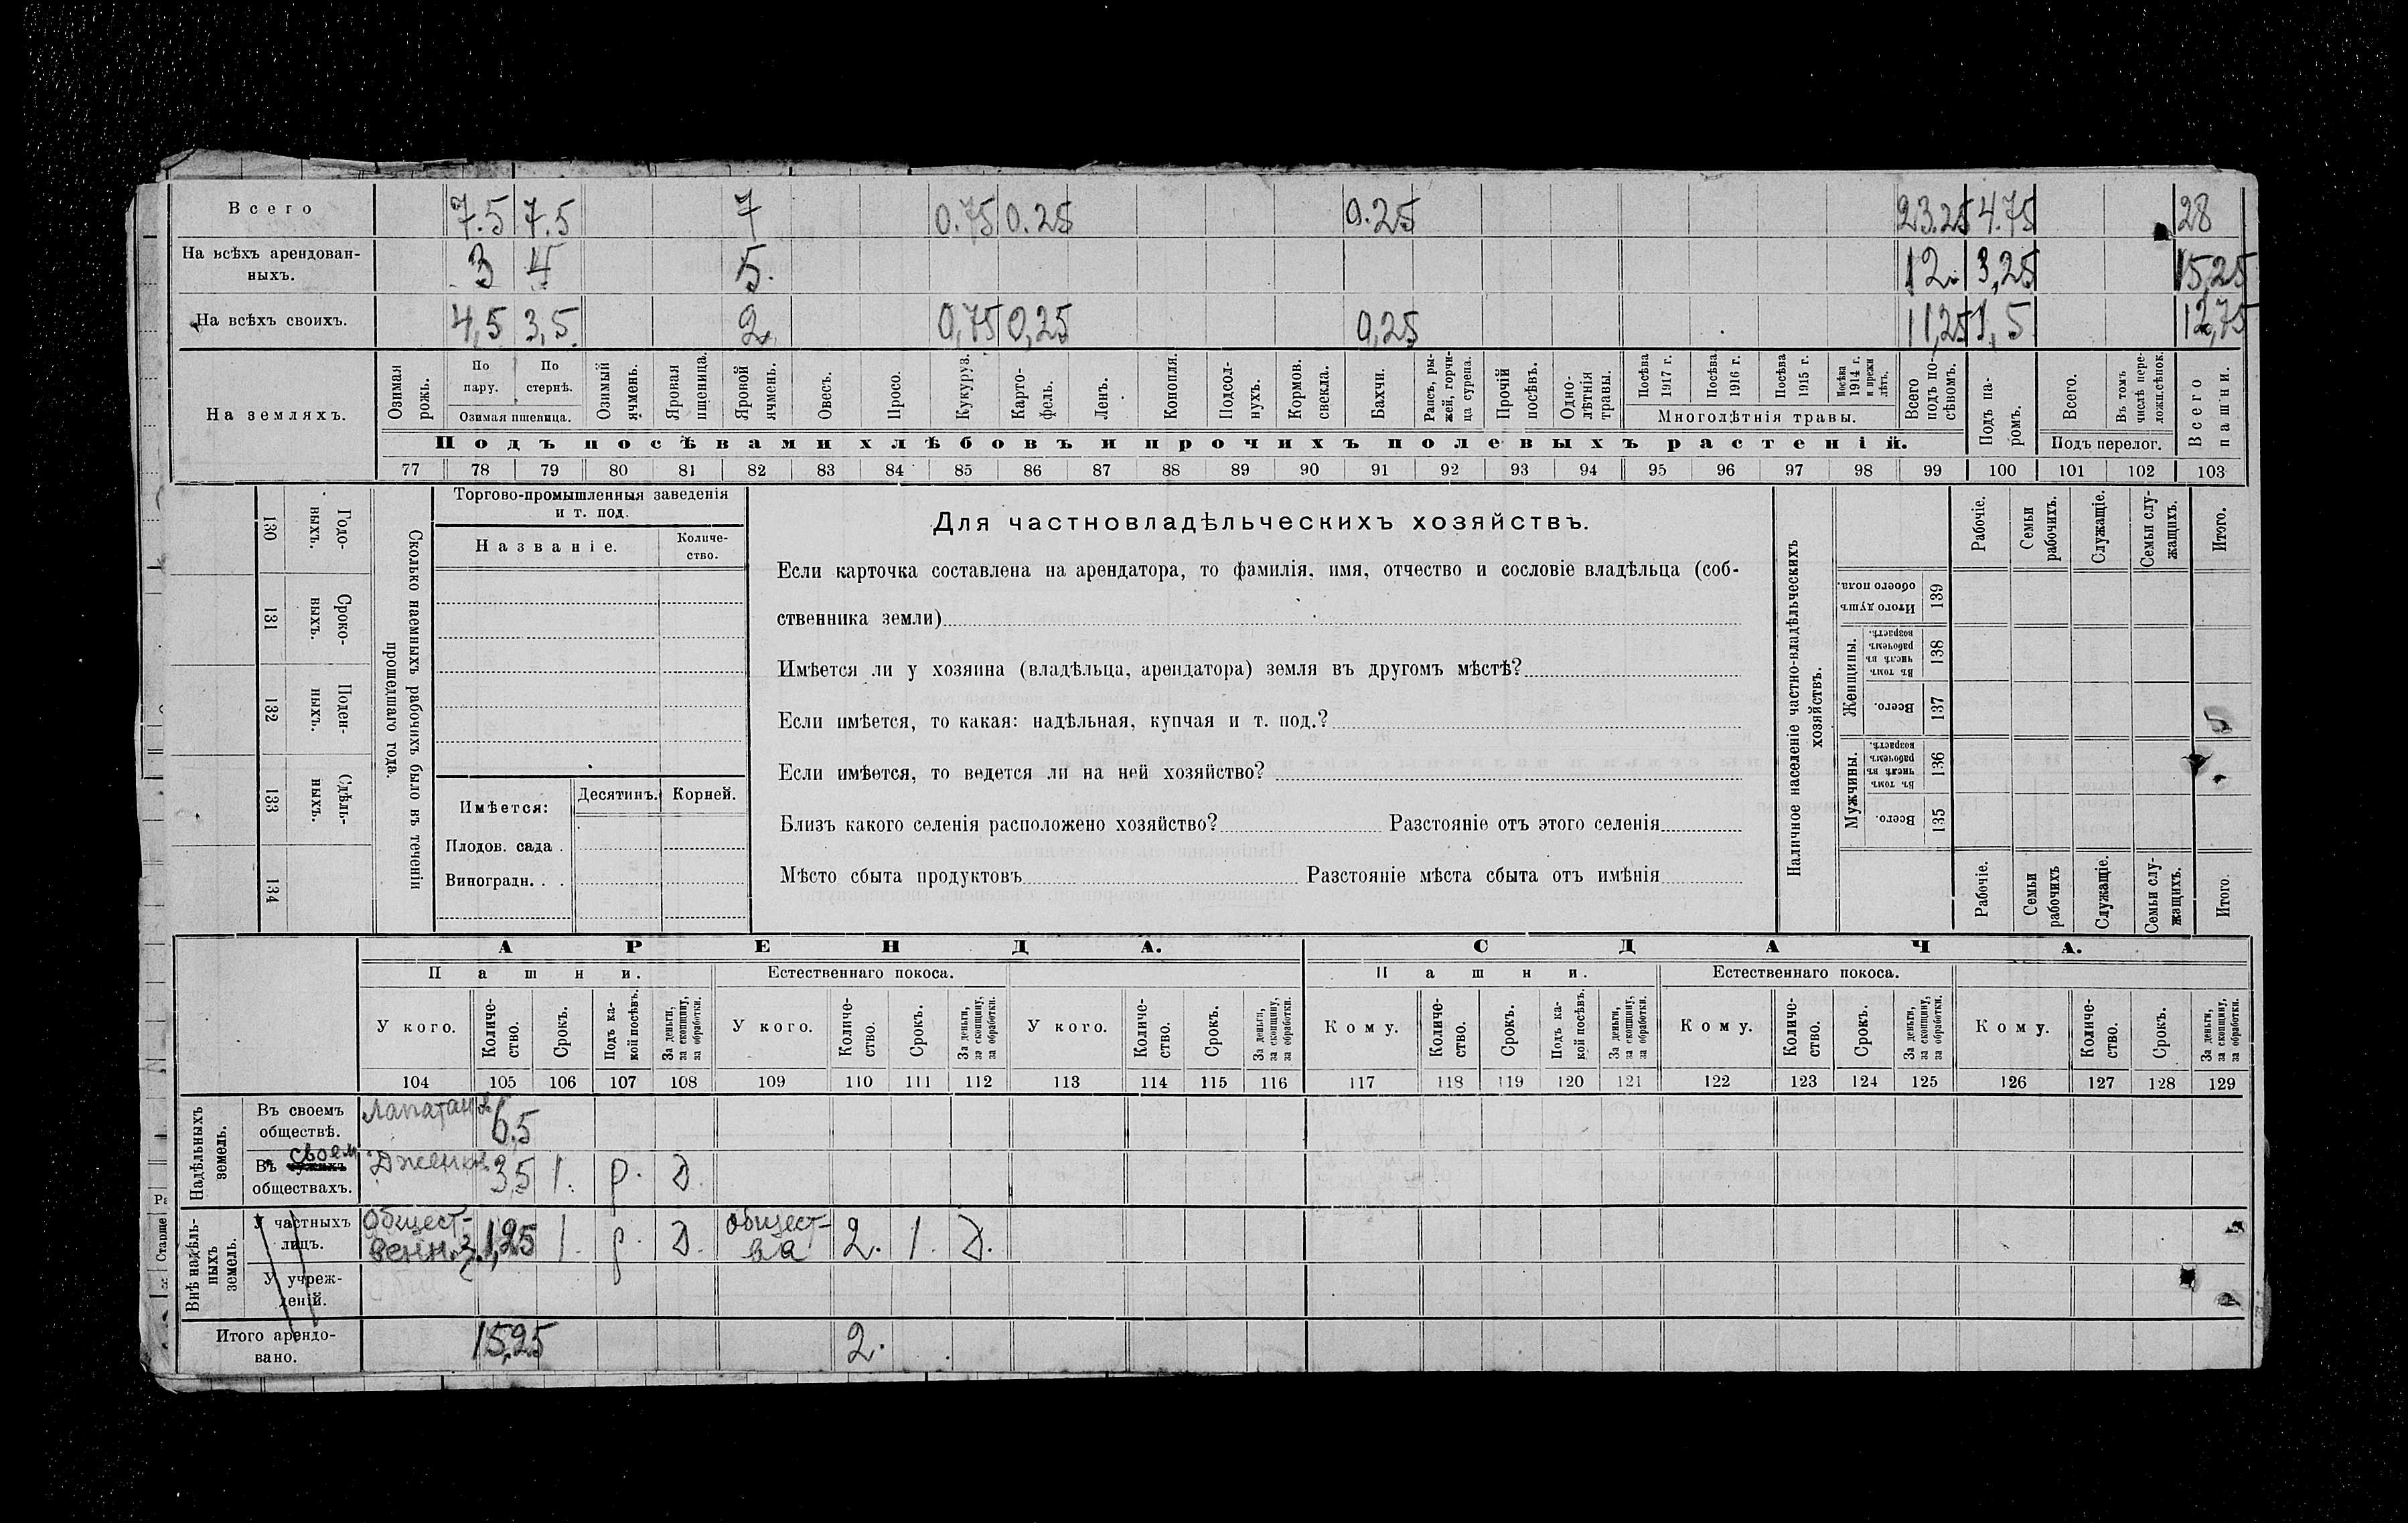 Всего 7.5 7.5 7 0.75 0.25 0.25 23.25 4.75 28
На всѣхъ арендован-
ныхъ. 3 4 5. 12. 3,25 15,25
На всѣхъ своихъ. 4,5 3,5. 2. 0,75 0,25 0,25 11,25 1,5 12,75
На земляхъ.
Озимая рожь.
По пару.
По стернѣ.
Озимая пшеница.
Озимый ячмень.
Яровая пшеница.
Яровой ячмень.
Овесъ.
Просо.
Кукуруз.
Карто-
фель.
Ленъ.
Конопля.
Подсол-
нухъ.
Кормов.
свекла.
Бахчи.
Рапсъ, ры-
жей, горчи-
ца сурепа.
Прочій
посѣвъ.
Одно-
лѣтнія
травы.
Посѣва
1917 г.
Посѣва
1916 г.
Посѣва
1915 г.
Посѣва
1914 г.
и прежн
лѣтъ.
Многолѣтнія травы.
Всего
подъ по-
сѣвомъ.
Подъ па-
ромъ.
Всего.
Въ томъ
числѣ пере-
ложн.сѣнок.
Подъ перелог.
Всего
пашни.
Подъ посѣвами хлѣбовъ и прочихъ полевыхъ растеній.
77 78 79 80 81 82 83 84 85 86 87 88 89 90 91 92 93 94 95 96 97 98 99 100 101 102 103
130 Годо-
выхъ.
131 Сроко-
выхъ.
132 Поден-
ныхъ.
133 Сдѣль-
ныхъ.
134
Сколько наемныхъ рабочихъ было въ теченіи
прошедшаго года.
Торгово-промышленныя заведенія
и т. под.
Названіе.
Количе-
ство.
Имѣется: Десятинъ. Корней.
Плодов. сада .
Виноградн. . .
Для частновладѣльческихъ хозяйствъ.
Если карточка составлена на арендатора, то фамилія, имя, отчество и сословіе владѣльца (соб-
ственника земли)
Имѣется ли у хозяина (владѣльца, арендатора) земля въ другомъ мѣстѣ?
Если имѣется, то какая: надѣльная, купчая и т. под.?
Если имѣется, то ведется ли на ней хозяйство?
Близъ какого селенія расположено хозяйство? Разстояніе отъ этого селенія
Мѣсто сбыта продуктовъ Разстояніе мѣста сбыта отъ имѣнія
Наличное населеніе частно-владѣльческихъ
хозяйствъ.
Рабочіе.
Семьи
рабочихъ.
Служащіе.
Семьи слу-
жащихъ.
Итого.
Итого душъ
обоего пола.
139
Женщины.
Въ томъ
числѣ въ
рабочемъ
возрастѣ.
138
Всего.
137
Мужчины.
Въ томъ
числѣ въ
рабочемъ
возрастѣ.
136
Всего.
135
Рабочіе.
Семьи
рабочихъ
Служащіе.
Семьи слу-
жащихъ.
Итого.
АРЕНДА. СДАЧА.
Пашни. Естественнаго покоса. Пашни. Естественнаго покоса.
У кого.
Количе-
ство.
Срокъ.
Подъ ка-
кой посѣвъ.
За деньги,
за скопщину,
за обработки.
У кого.
Количе-
ство.
Срокъ.
За деньги,
за скопщину,
за обработки.
У кого.
Количе-
ство.
Срокъ.
За деньги,
за скопщину,
за обработки.
Кому.
Количе-
ство.
Срокъ.
Подъ ка-
кой посѣвъ.
За деньги,
за скопщину,
за обработки.
Кому.
Количе-
ство.
Срокъ.
За деньги,
за скопщину,
за обработки.
Кому.
Количе-
ство.
Срокъ.
За деньги,
за скопщину,
за обработки.
104 105 106 107 108 109 110 111 112 113 114 115 116 117 118 119 120 121 122 123 124 125 126 127 128 129
Надѣльныхъ
земель.
Въ своемъ
обществѣ. 6,5
своем
Въ чужихъ
обществахъ. 3,5 1. р. д.
Внѣ надѣль-
ныхъ
земель.
У частныхъ
лицъ. Общест-
венн. з. 1,25 1. р. д. Общест-
ва 2. 1. д.
У учреж-
деній.
Итого арендо-
вано. 15,25 2.